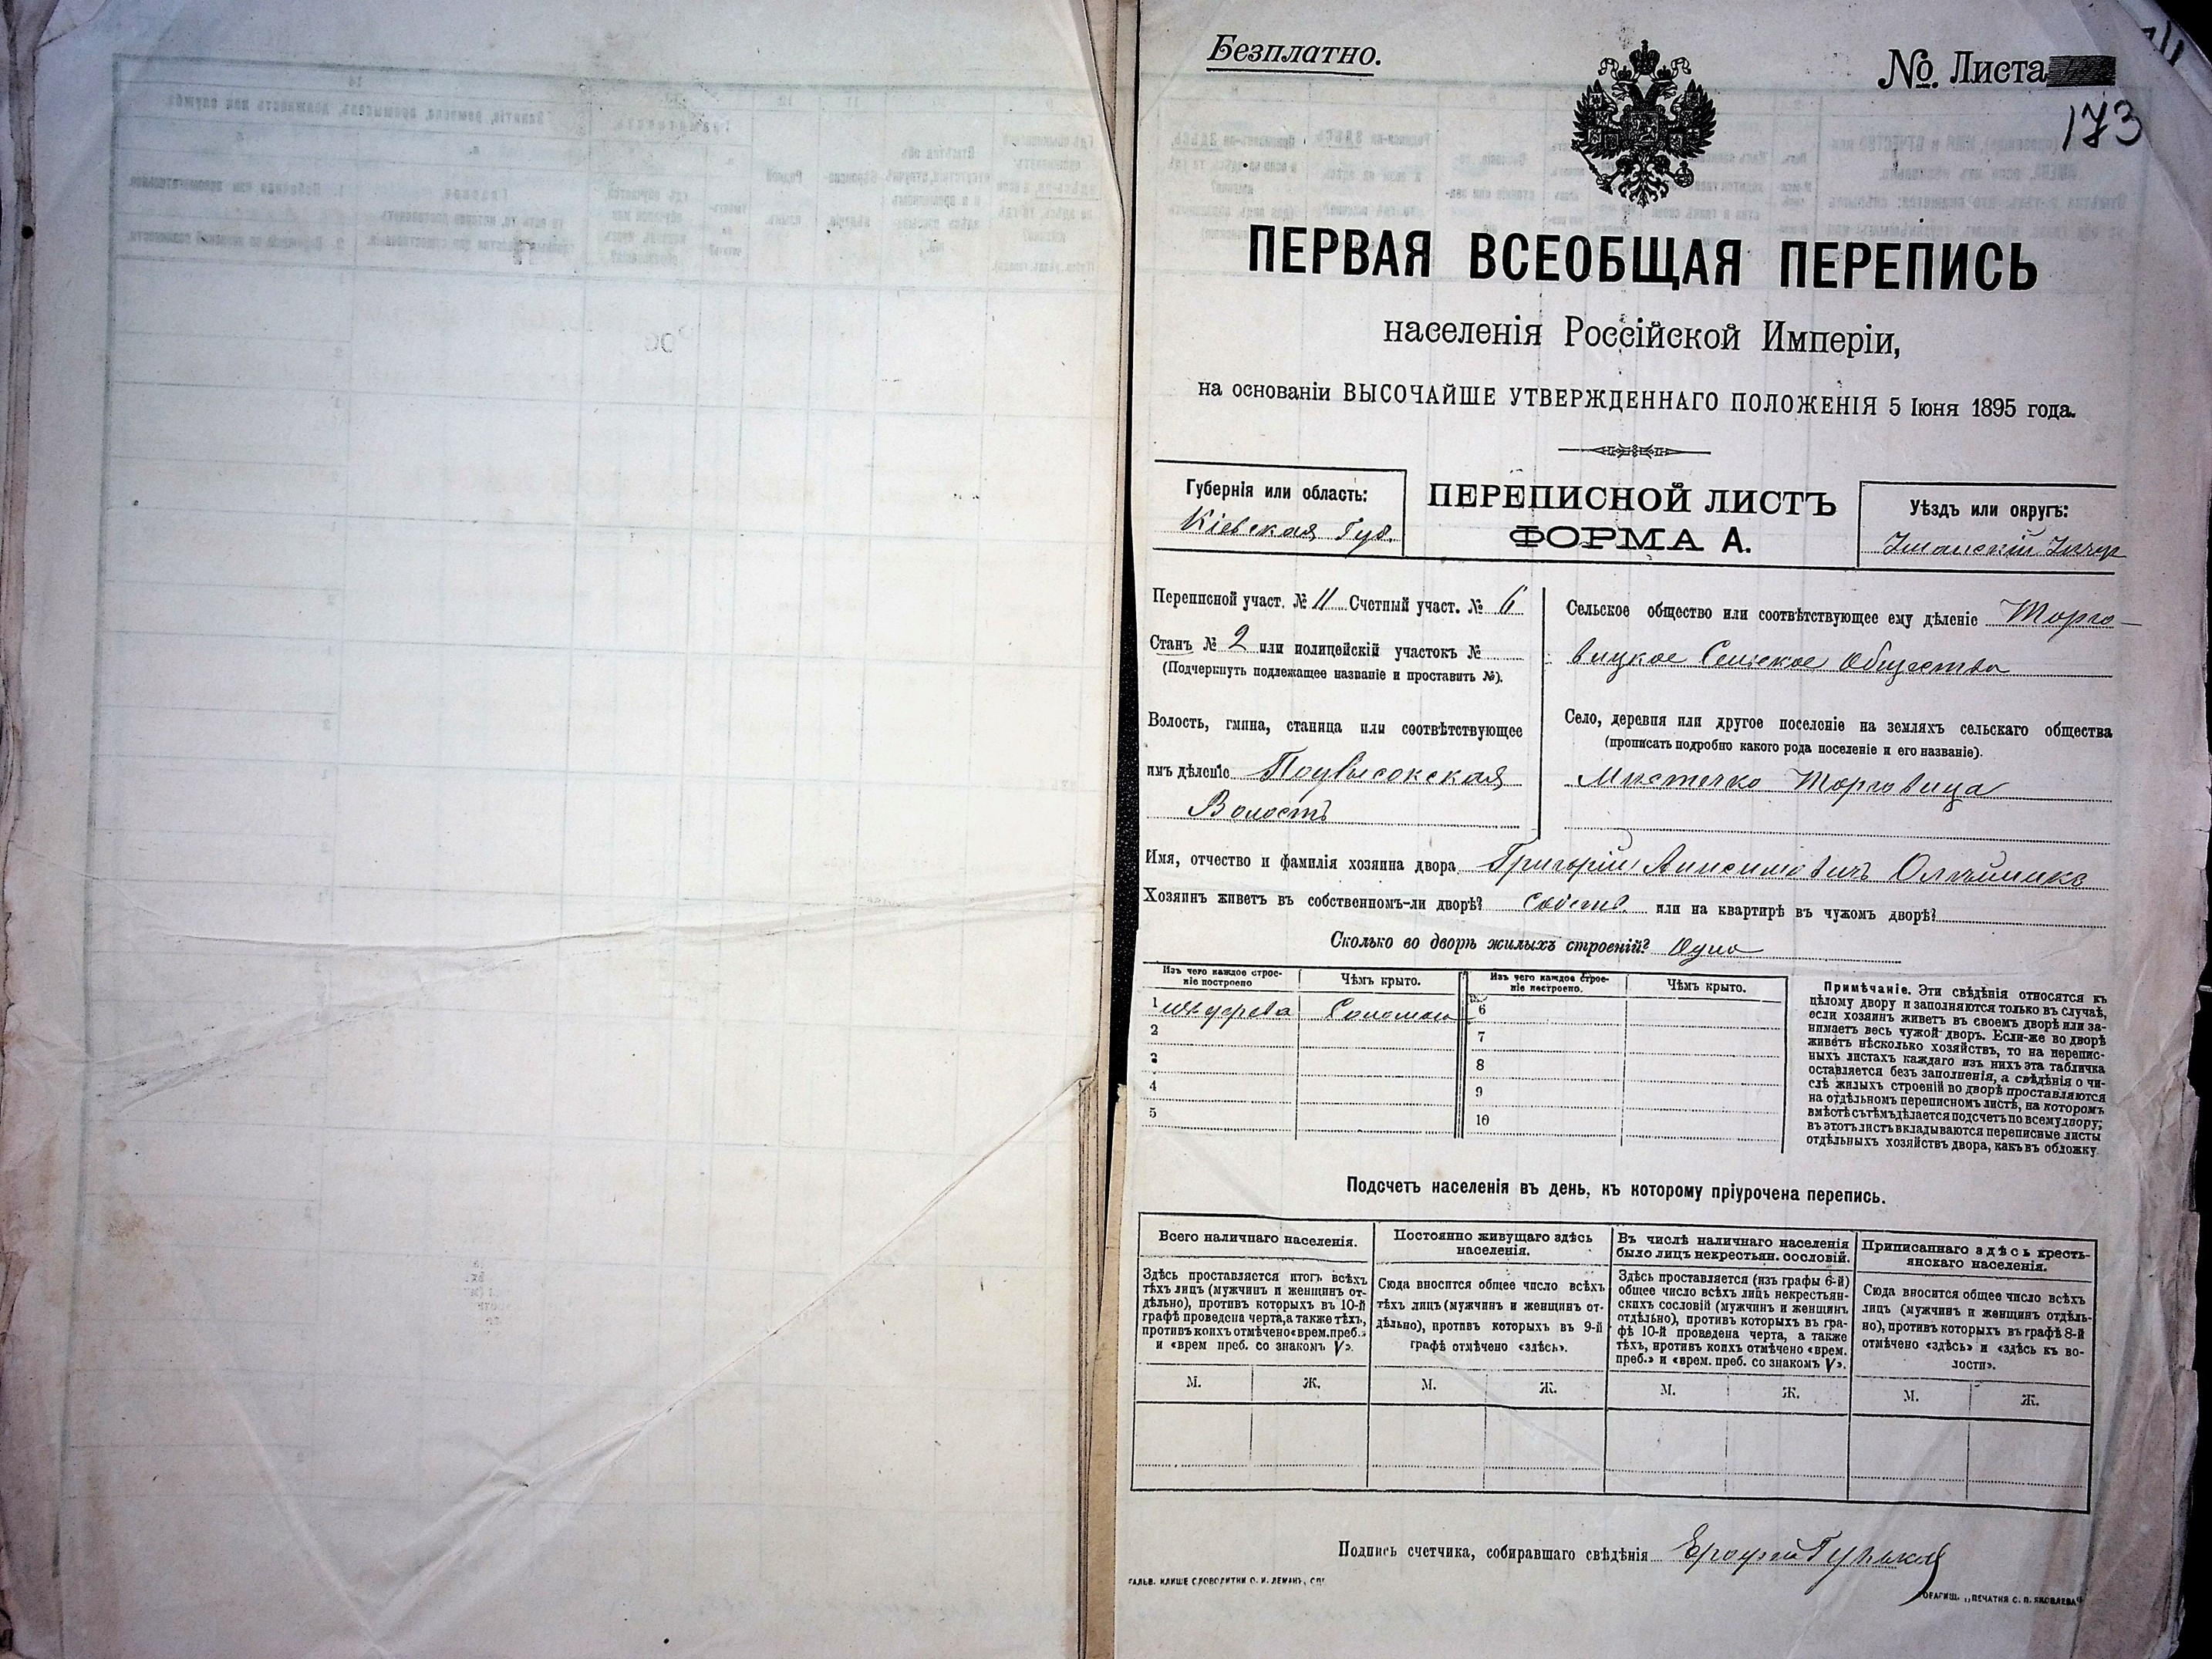 Безплатно.
№ Листа
173
ПЕРВАЯ ВСЕОБЩАЯ ПЕРЕПИСЬ
населенія Россійской Имперіи,
на основаніи ВЫСОЧАЙШЕ УТВЕРЖДЕННАГО ПОЛОЖЕНІЯ 5 Іюня 1895 года.
Губернія или область:
Кіевская Губ.
ПЕРЕПИСНОЙ ЛИСТЪ
ФОРМА А.
Уѣздъ или округъ:
Уманскій
Переписной участ. № 11 Счетный участ. № 6
Станъ № 2 или полицейскій участокъ №
(Подчеркнуть подлежащее названіе и проставить №).
Волость, гмина, станица или соотвѣтствующее
имъ дѣленіе Подвысокская
Волость
Сельское общество или соотвѣтствующее ему дѣленіе Торго-
вицкое Сельское Общество
Село, деревня или другое поселеніе на земляхъ сельскаго общества
(прописать подробно какого рода поселеніе и его названіе).
Мистечко Торговица
Имя, отчество и фамилія хозяина двора Григорій Анисимовичъ Олейникъ
Хозяинъ живетъ въ собственномъ-ли дворѣ? собств. или на квартирѣ въ чужомъ дворѣ?
Сколько во дворѣ жилыхъ строеній? Одно
Изъ чего каждое строе-
ніе построено
Чѣмъ крыто.
Изъ чего каждое строе-
ніе построено.
Чѣмъ крыто.
1 изъ дерева Соломою 6
2 7
3 8
4 9
5 10
Примѣчаніе. Эти свѣдѣнія относятся къ
цѣлому двору и заполняются только въ случаѣ,
если хозяинъ живетъ въ своемъ дворѣ или за-
нимаетъ весь чужой дворъ. Если-же во дворѣ
живетъ нѣсколько хозяйствъ, то на перепис-
ныхъ листахъ каждаго изъ нихъ эта табличка
оставляется безъ заполненія, а свѣдѣнія о чи-
слѣ жилыхъ строеній во дворѣ проставляются
на отдѣльномъ переписномъ листѣ, на которомъ
вмѣстѣ съ тѣмъ дѣлается подсчетъ по всему двору;
въ этотъ листъ вкладываются переписные листы
отдѣльныхъ хозяйствъ двора, какъ въ обложку.
Подсчетъ населенія въ день, къ которому пріурочена перепись.
Всего наличнаго населенія.
Здѣсь проставляется итогъ всѣхъ
тѣхъ лицъ (мужчинъ и женщинъ от-
дѣльно), противъ которыхъ въ 10-й
графѣ проведена черта, а также тѣхъ,
противъ коихъ отмѣчено «врем. преб.»
и «врем преб. со знакомъ V».
М. Ж.
Постоянно живущаго здѣсь
населенія.
Сюда вносится общее число всѣхъ
тѣхъ лицъ (мужчинъ и женщинъ от-
дѣльно), противъ которыхъ въ 9-й
графѣ отмѣчено «здѣсь».
М. Ж.
Въ числѣ наличнаго населенія
было лицъ некрестьян. сословій.
Здѣсь проставляется (изъ графы 6-й)
общее число всѣхъ лицъ некрестьян-
скихъ сословій (мужчинъ и женщинъ
отдѣльно), противъ которыхъ въ гра-
фѣ 10-й проведена черта, а также
тѣхъ, противъ коихъ отмѣчено «врем.
преб.» и «врем. преб. со знакомъ V».
М. Ж.
Приписаннаго здѣсь кресть-
янскаго населенія.
Сюда вносится общее число всѣхъ
лицъ (мужчинъ и женщинъ отдѣль-
но), противъ которыхъ въ графѣ 8-й
отмѣчено «здѣсь» и «здѣсь къ во-
лости».
М. Ж.
Подпись счетчика, собиравшаго свѣдѣнія Ерофей
ГАЛЬВ. КЛИШЕ СЛОВОЛИТНИ О. И. ЛЕМАНЪ, СПБ
ТОВАРИЩ. „ПЕЧАТНЯ С. П. ЯКОВЛЕВА“